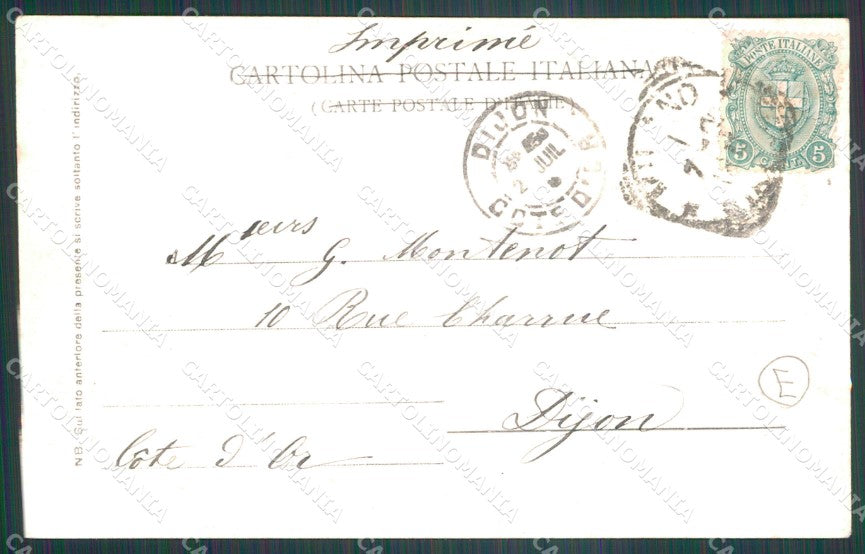 Imprimé
CARTOLINA POSTALE ITALIANA
(CARTE POSTALE D'ITALIE)
POSTE ITALIANE
5 5
DIJON
2 JUIL
COTE D'OR
Mssieurs G. Montenot
10 Rue Charrue
Dijon
Côte d'Or
E
NB. Sul lato anteriore della presente si scrive soltanto l'indirizzo.
CARTOLINOMANIA